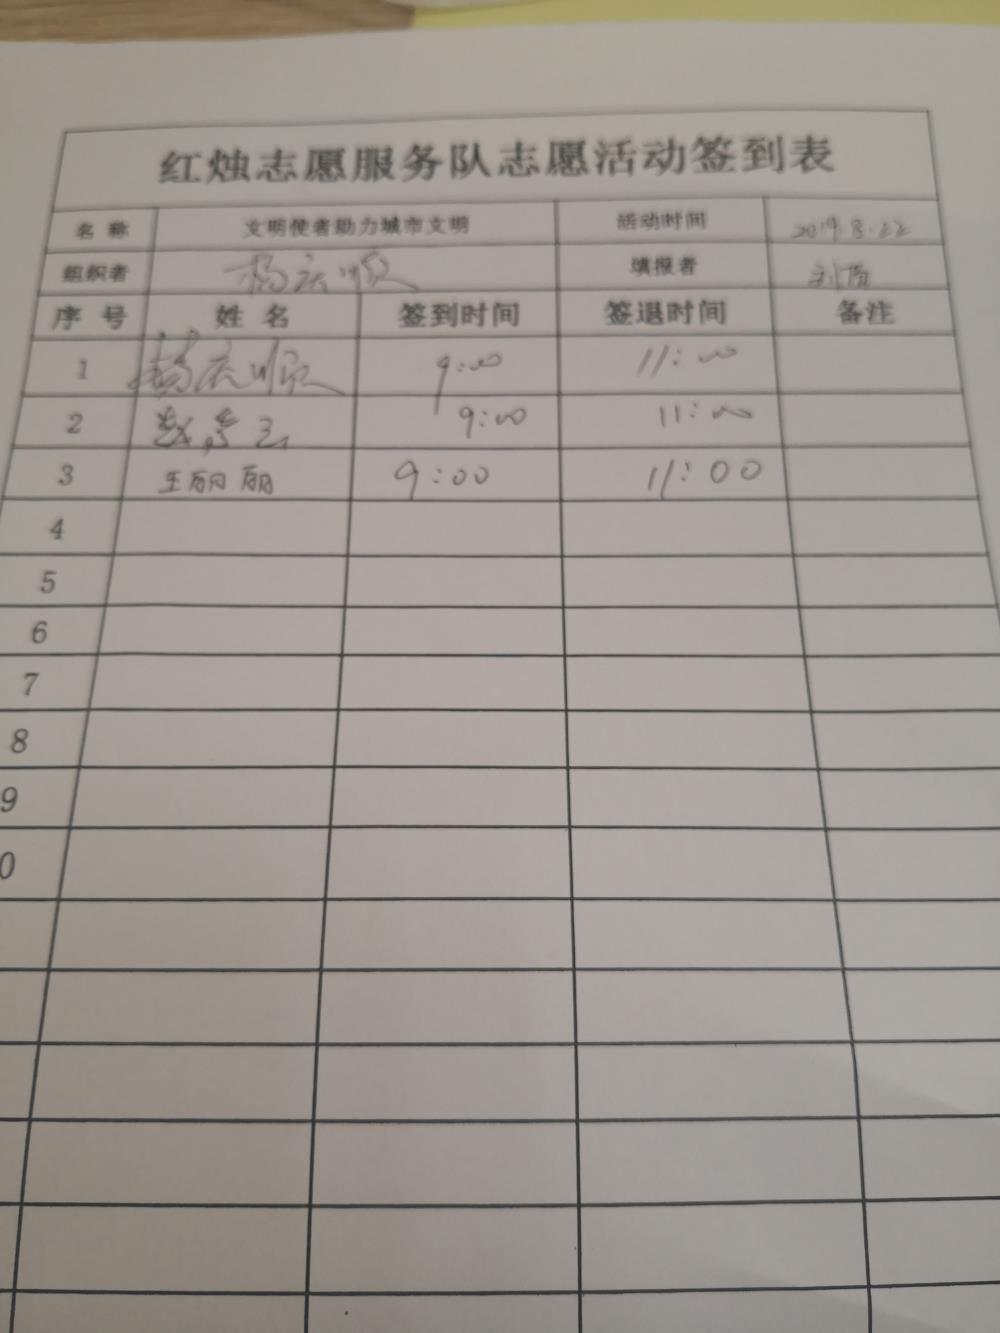 红烛志愿服务队志愿活动签到表
名称 文明使者助力城市文明 活动时间 2019.8.22
组织者 杨庆顺 填报者
序号 姓名 签到时间 签退时间 备注
1 杨庆顺 9:00 11:00
2 9:00 11:00
3 王丽丽 9:00 11:00
4
5
6
7
8
9
0